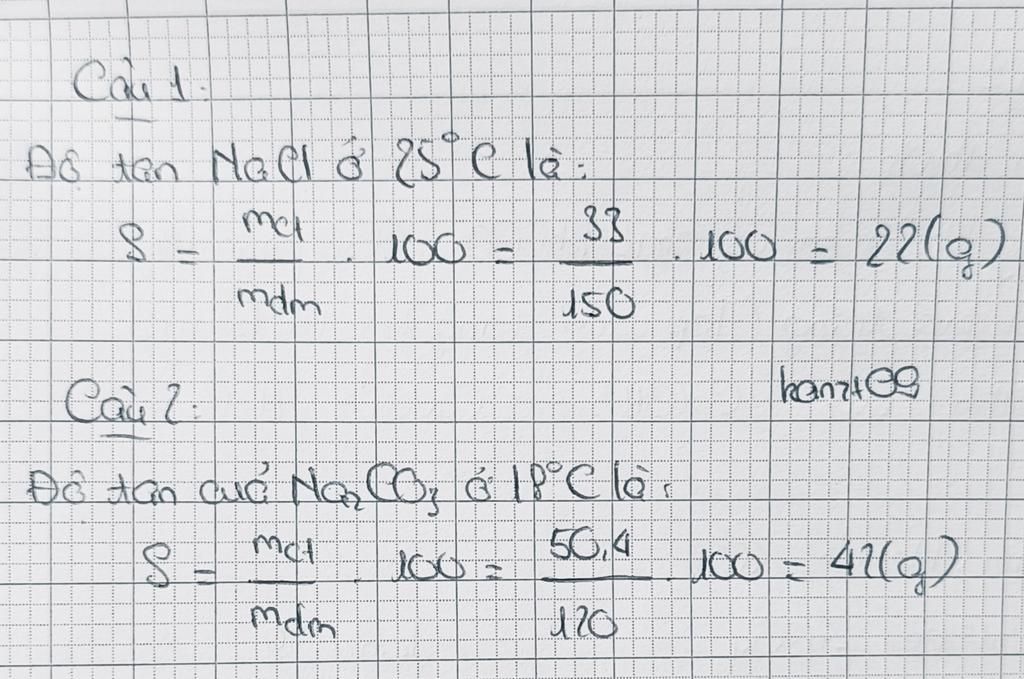 Câu 1:
Độ tan NaCl ở 25°C là:
S = mct/mdm . 100 = 33/150 . 100 = 22(g)
Câu 2:
Độ tan của Na₂CO₃ ở 18°C là:
S = mct/mdm . 100 = 50,4/120 . 100 = 42(g)